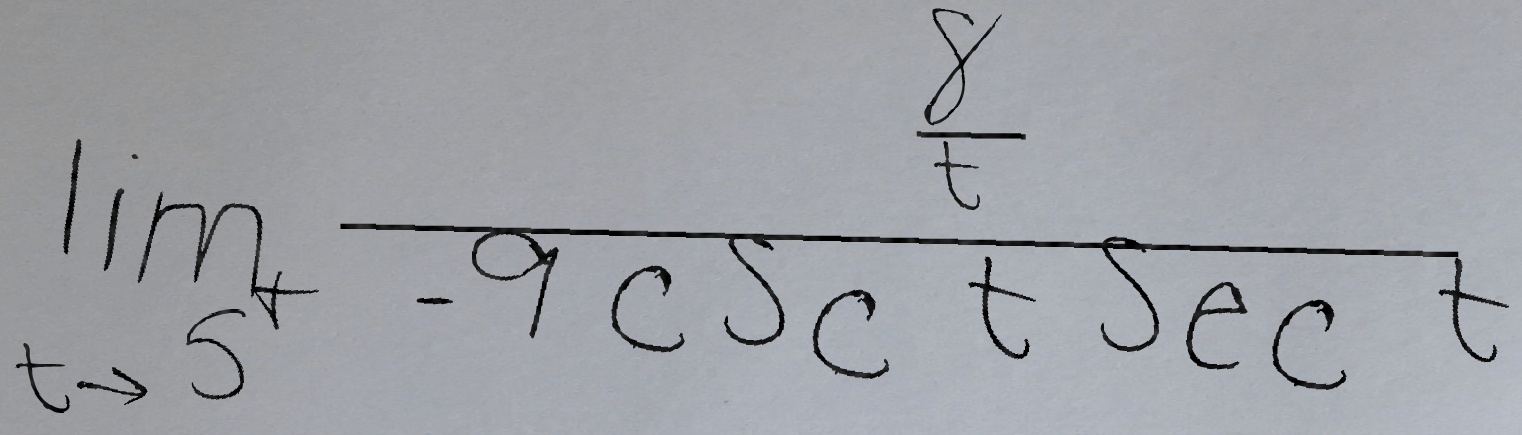 \lim_{t \to 5^+} \frac{\frac{8}{t}}{-9 \csc t \sec t}